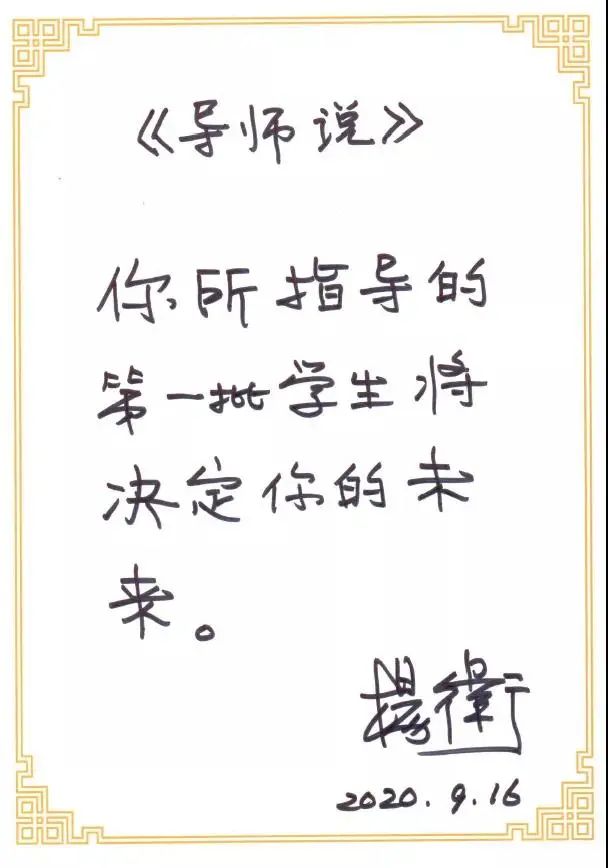 《导师说》
你所指导的
第一批学生将
决定你的未
来。
楊衛
2020.9.16